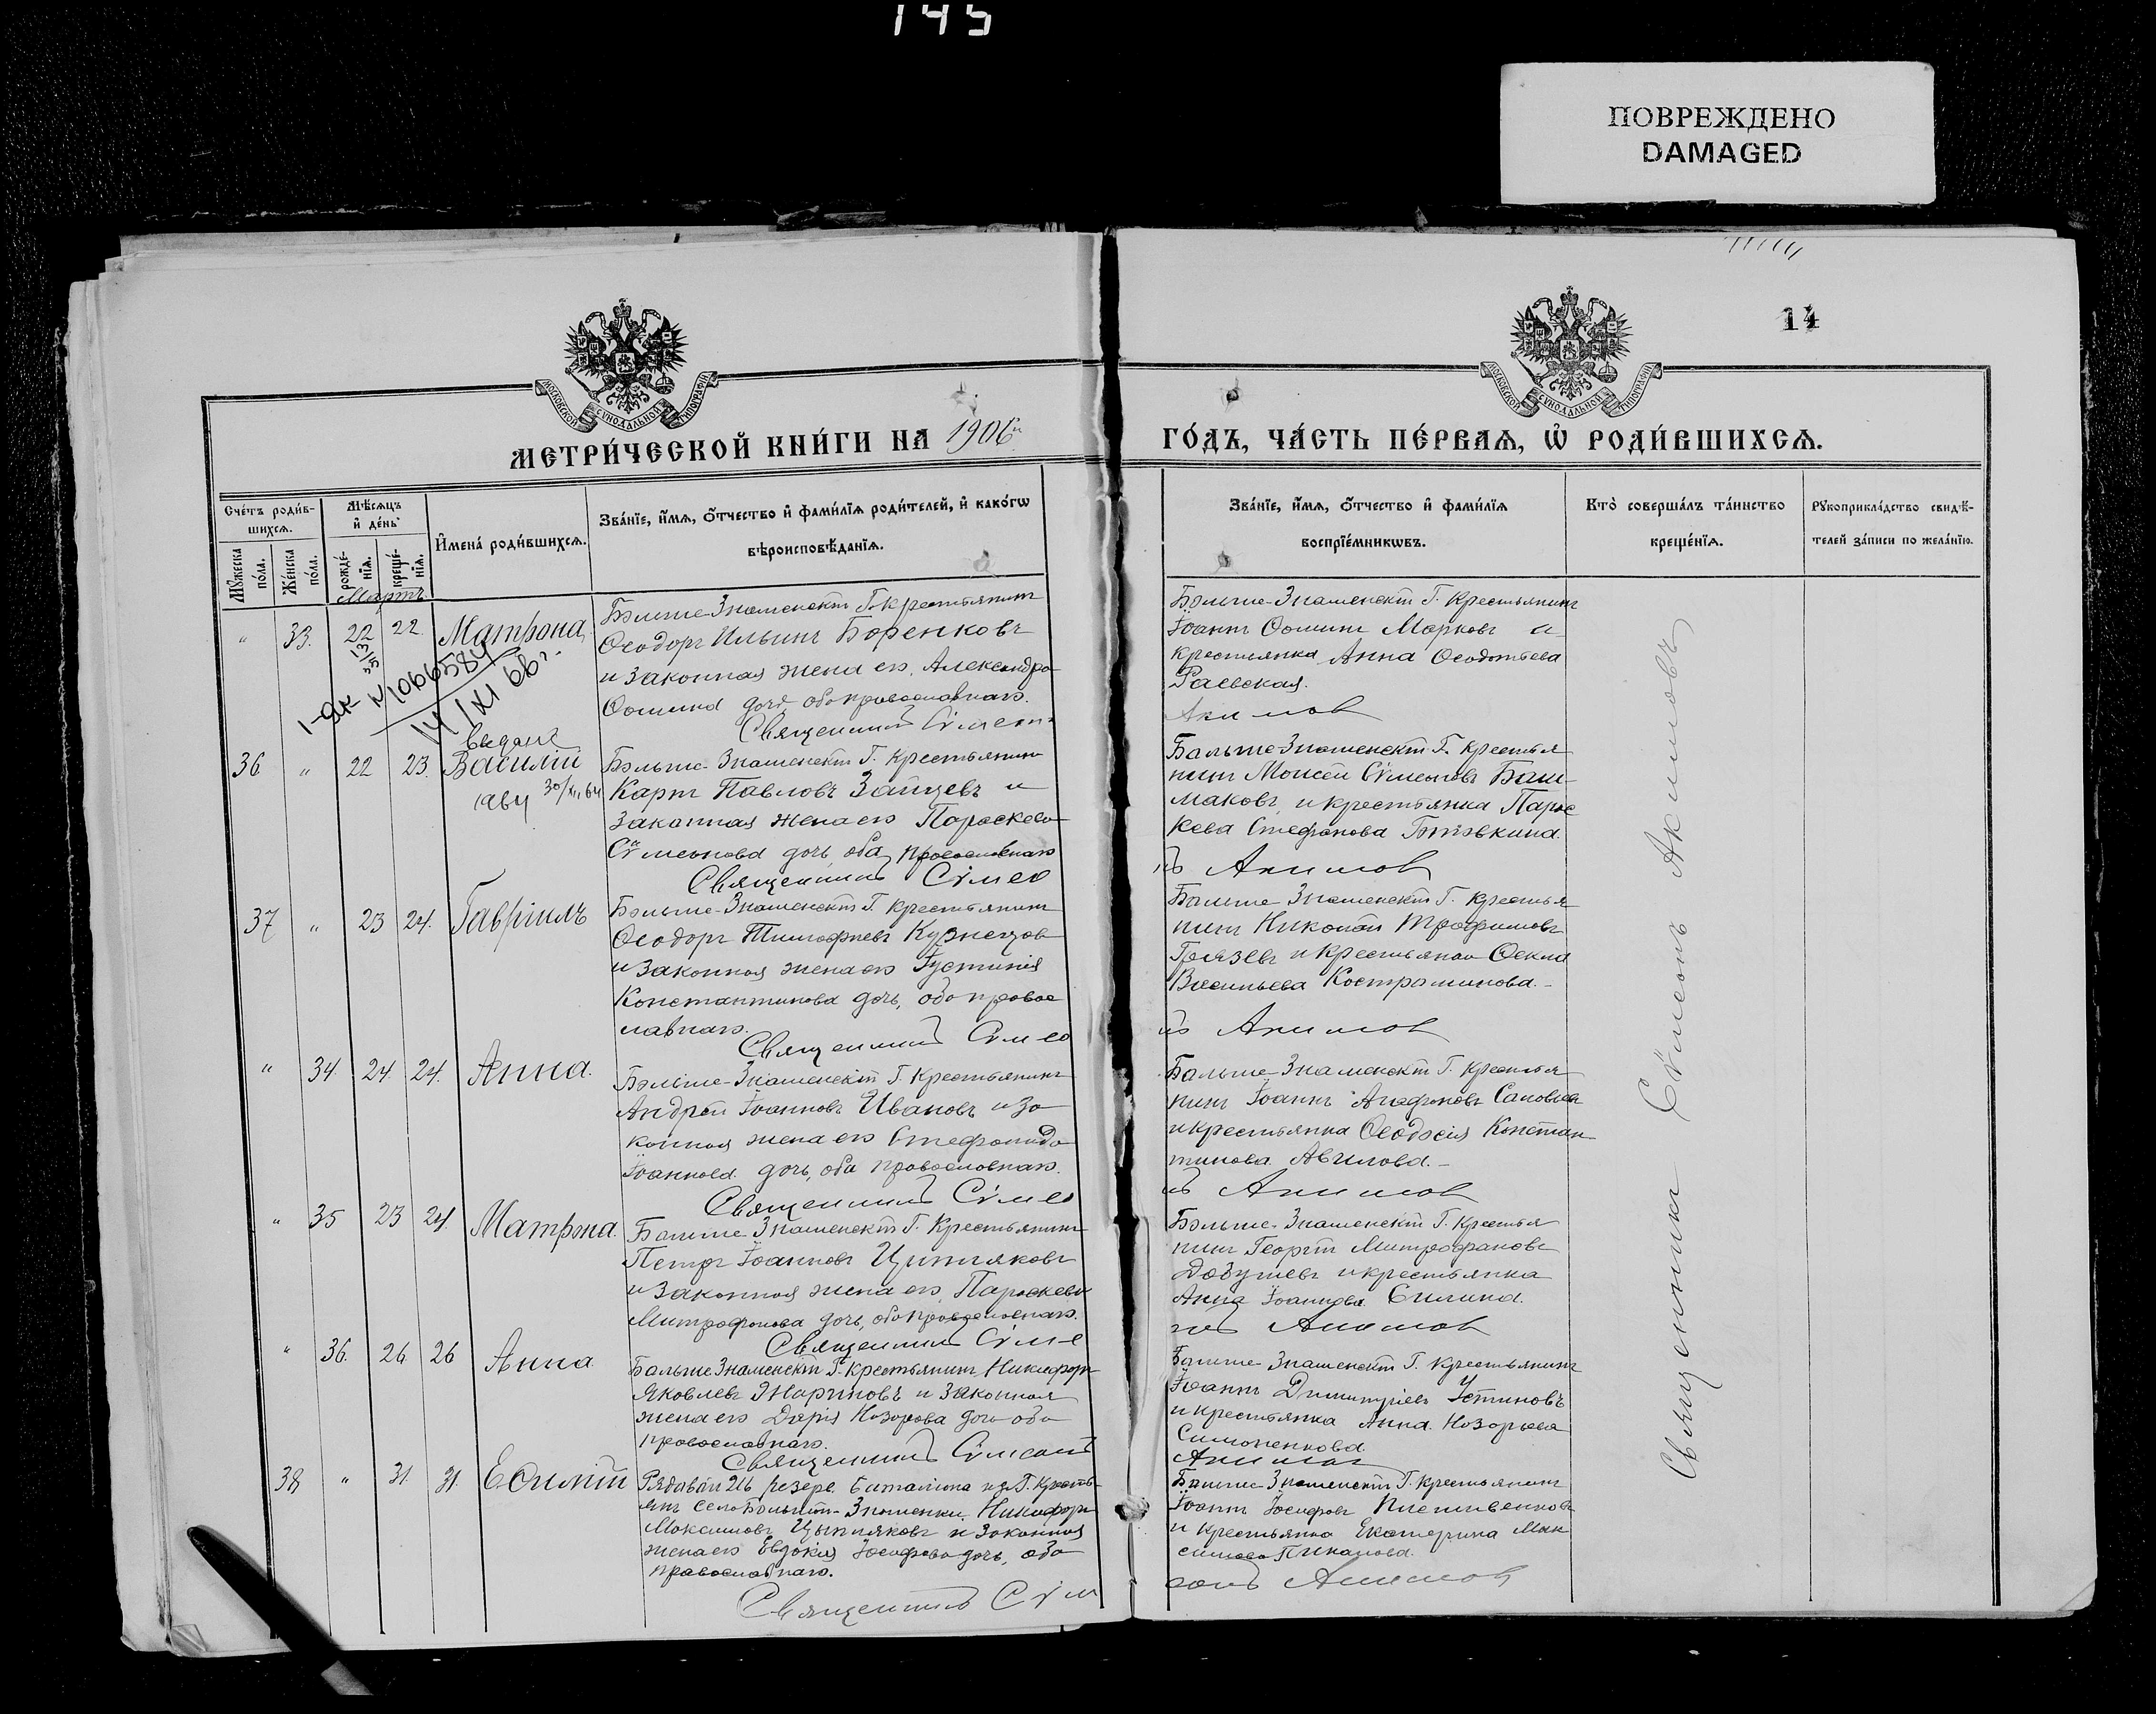 145
ПОВРЕЖДЕНО
DAMAGED
14
МОСКОВСКОЙ СѴНОДАЛЬНОЙ ТИПОГРАФІИ
МОСКОВСКОЙ СѴНОДАЛЬНОЙ ТИПОГРАФІИ
МЕТРИ́ЧЕСКОЙ КНИ́ГИ НА 1906й
ГО́ДЪ, ЧА́СТЬ ПЕ́РВАѦ, Ѡ҆ РОДИ́ВШИХСѦ.
Сче́тъ роди́в-
шихсѧ.
Мѣ́сѧцъ
и҆ де́нь
И҆мена̀ роди́вшихсѧ.
Зва́нїе, и҆́мѧ, о҆́тчество и҆ фами́лїѧ роди́телей, и҆ како́гѡ
вѣроисповѣ́данїѧ.
Мꙋ́жеска по́ла.
Же́нска по́ла.
рожде́-нїѧ.
креще́-нїѧ.
Зва́нїе, и҆́мѧ, о҆́тчество и҆ фами́лїѧ
воспрїе́мникѡвъ.
Кто̀ соверша́лъ та́инство
креще́нїѧ.
Рꙋкоприкла́дство свидѣ́-
телей за́писи по жела́нїю.
Мартъ
" 33. 22 22. Матрона
Больше-Знаменскій Г. крестьянинъ
Ѳеодоръ Ильинъ Боренковъ
и законная жена его, Александра
Ѳомина дочь, оба православнаго.
Священникъ Сѵмеонъ
Больше-Знаменскій Г. крестьянинъ
Іоаннъ Ѳоминъ Марковъ и
крестьянка Анна Ѳеодотьева
Раевская.
Акимовъ
1-ЯК N1066584
14/XI 66г.
выдана
36 " 22 23. Василій
30/XII 64
Больше-Знаменскій Г. крестьянинъ
Карпъ Павловъ Зайцевъ и
законная жена его Параскева
Сѵмеонова дочь, оба православнаго
Священникъ Сѵмео
Больше-Знаменскій Г. крестья
нинъ Моисей Сѵмеоновъ Баш-
маковъ, и крестьянка Парас
кева Стефанова
нъ Акимовъ
37 " 23 24. Гавріилъ
Больше-Знаменскій Г. крестьянинъ
Ѳеодоръ Тимоѳеевъ Кузнецов
и законная жена его Іустинія
Константинова дочь, оба правос
лавнаго.
Священникъ Сѵмео
Больше Знаменскій Г. крестья
нинъ Николай Трофимовъ
Грязевъ и крестьянка Ѳекла
Васильева Костромитинова.-
нъ Акимовъ
" 34 24 24. Анна.
Больше-Знаменскій Г. крестьянинъ
Андрей Іоанновъ Ивановъ и за
конная жена его Стефанида
Іоаннова дочь, оба православнаго.
Священникъ Сѵмео
Больше-Знаменскій Г. крестья
нинъ Іоаннъ Агафоновъ
и крестьянка Ѳеодосія Констан
тинова Авилова.-
нъ Акимовъ
" 35 23 24. Матрона.
Больше Знаменскій Г. крестьянинъ
Петръ Іоанновъ Цыпляковъ
и законная жена его, Параскева
Митрофанова дочь, оба православнаго.
Священникъ Сѵме
Больше-Знаменскій Г. крестья
нинъ Георгій Митрофановъ
и крестьянка
Анна Іоаннова Силина.
онъ Акимовъ
" 36. 26 26 Анна
Больше Знаменскій Г. крестьянинъ Никифоръ
Яковлевъ Жариновъ и законная
жена его Дарія Назарова дочь оба
православнаго.
Священникъ Сѵмеонъ
Больше-Знаменскій Г. крестьянинъ
Іоаннъ Димитріевъ Устиновъ
и крестьянка Анна Назарьева
Симоненкова
Акимовъ
38 " 31. 31.
Рядовой 216 резерв. баталіона изъ Г. кресть-
янъ села Большой-Знаменки, Никифоръ
Максимовъ Цыпляковъ и законная
жена его Евдокія Іосифова дочь, оба
православнаго.
Священникъ Сѵм
Больше Знаменскій Г. крестьянинъ
Іоаннъ Іосифовъ
и крестьянка Екатерина Мак
симова
еонъ Акимовъ
Священникъ Сѵмеонъ Акимовъ